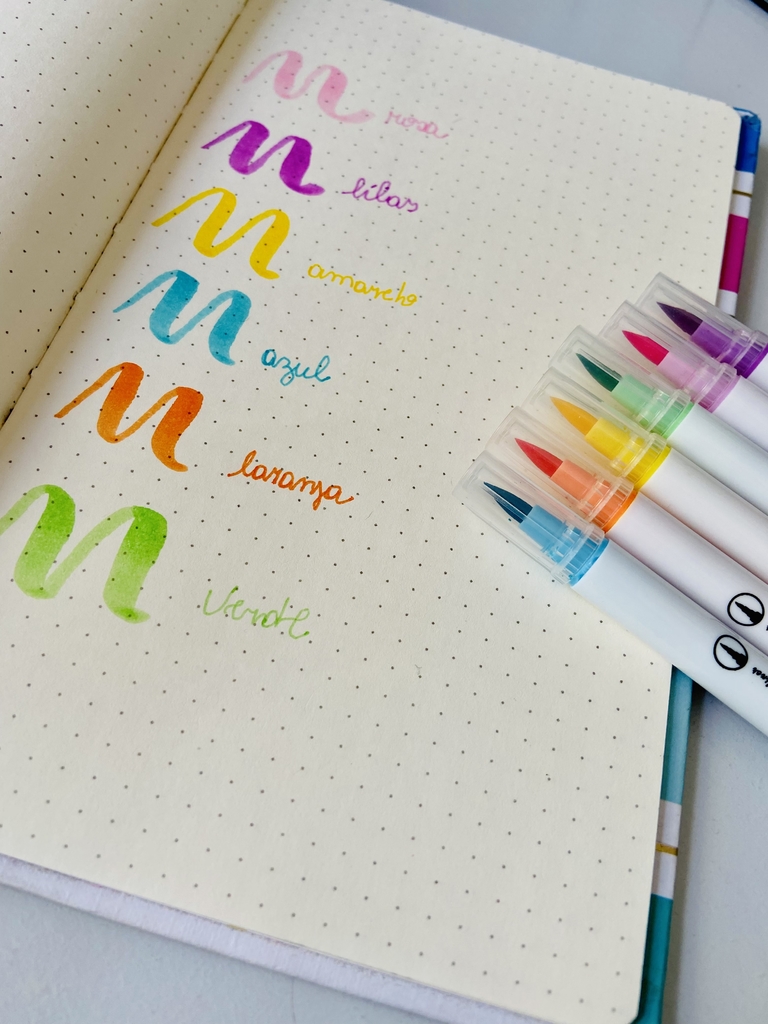 rosa
lilas
amarelo
azul
laranja
verde